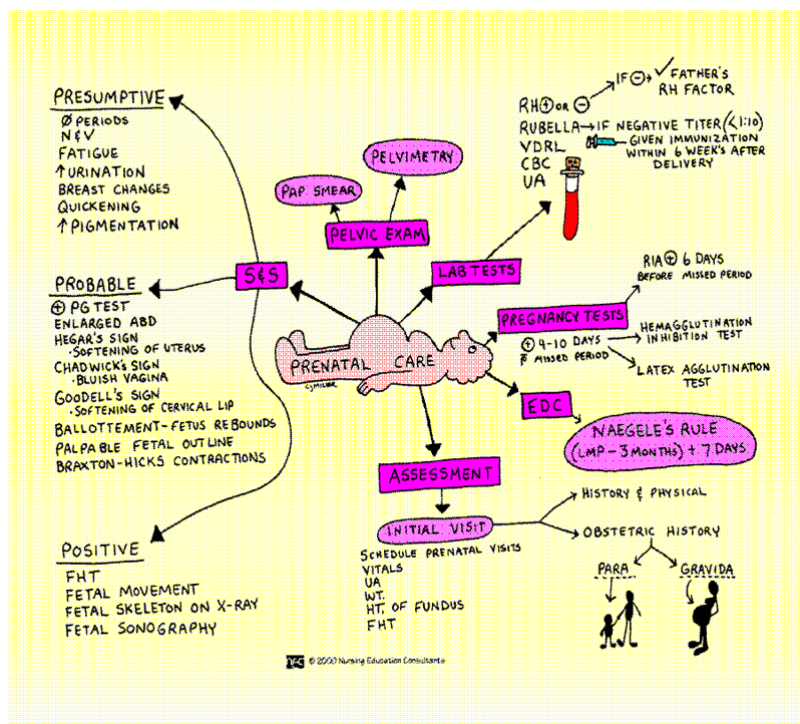 PRESUMPTIVE
Ø PERIODS
N & V
FATIGUE
↑ URINATION
BREAST CHANGES
QUICKENING
↑ PIGMENTATION
PROBABLE
⊕ PG TEST
ENLARGED ABD
HEGAR'S SIGN
• SOFTENING OF UTERUS
CHADWICK'S SIGN
• BLUISH VAGINA
GOODELL'S SIGN
• SOFTENING OF CERVICAL LIP
BALLOTTEMENT-FETUS REBOUNDS
PALPABLE FETAL OUTLINE
BRAXTON-HICKS CONTRACTIONS
POSITIVE
FHT
FETAL MOVEMENT
FETAL SKELETON ON X-RAY
FETAL SONOGRAPHY
S&S
PAP SMEAR
PELVIMETRY
PELVIC EXAM
LAB TESTS
RH ⊕ OR ⊖
IF ⊖ → ✓ FATHER'S
RH FACTOR
RUBELLA → IF NEGATIVE TITER (<1:10)
GIVEN IMMUNIZATION
WITHIN 6 WEEK'S AFTER
DELIVERY
VDRL
CBC
UA
PRENATAL CARE
CJMILLER
PREGNANCY TESTS
RIA ⊕ 6 DAYS
BEFORE MISSED PERIOD
⊕ 4-10 DAYS
p̄ MISSED PERIOD
HEMAGGLUTINATION
INHIBITION TEST
LATEX AGGLUTINATION
TEST
EDC
NAEGELE'S RULE
(LMP - 3 MONTHS) + 7 DAYS
ASSESSMENT
INITIAL VISIT
SCHEDULE PRENATAL VISITS
VITALS
UA
WT.
HT. OF FUNDUS
FHT
HISTORY & PHYSICAL
OBSTETRIC HISTORY
PARA
GRAVIDA
nec © 2000 Nursing Education Consultants